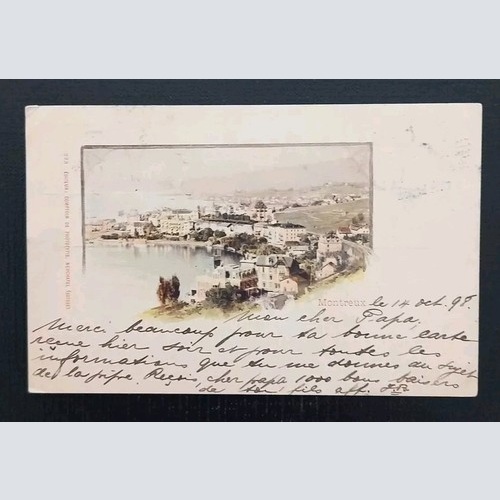 Montreux le 14 oct. 98.
Mon cher Papa,
Merci beaucoup pour ta bonne carte
reçue hier soir et pour toutes les
informations que tu me donnes au sujet
de la fifre. Reçois, cher papa 1000 bons baisers
de ton fils aff.